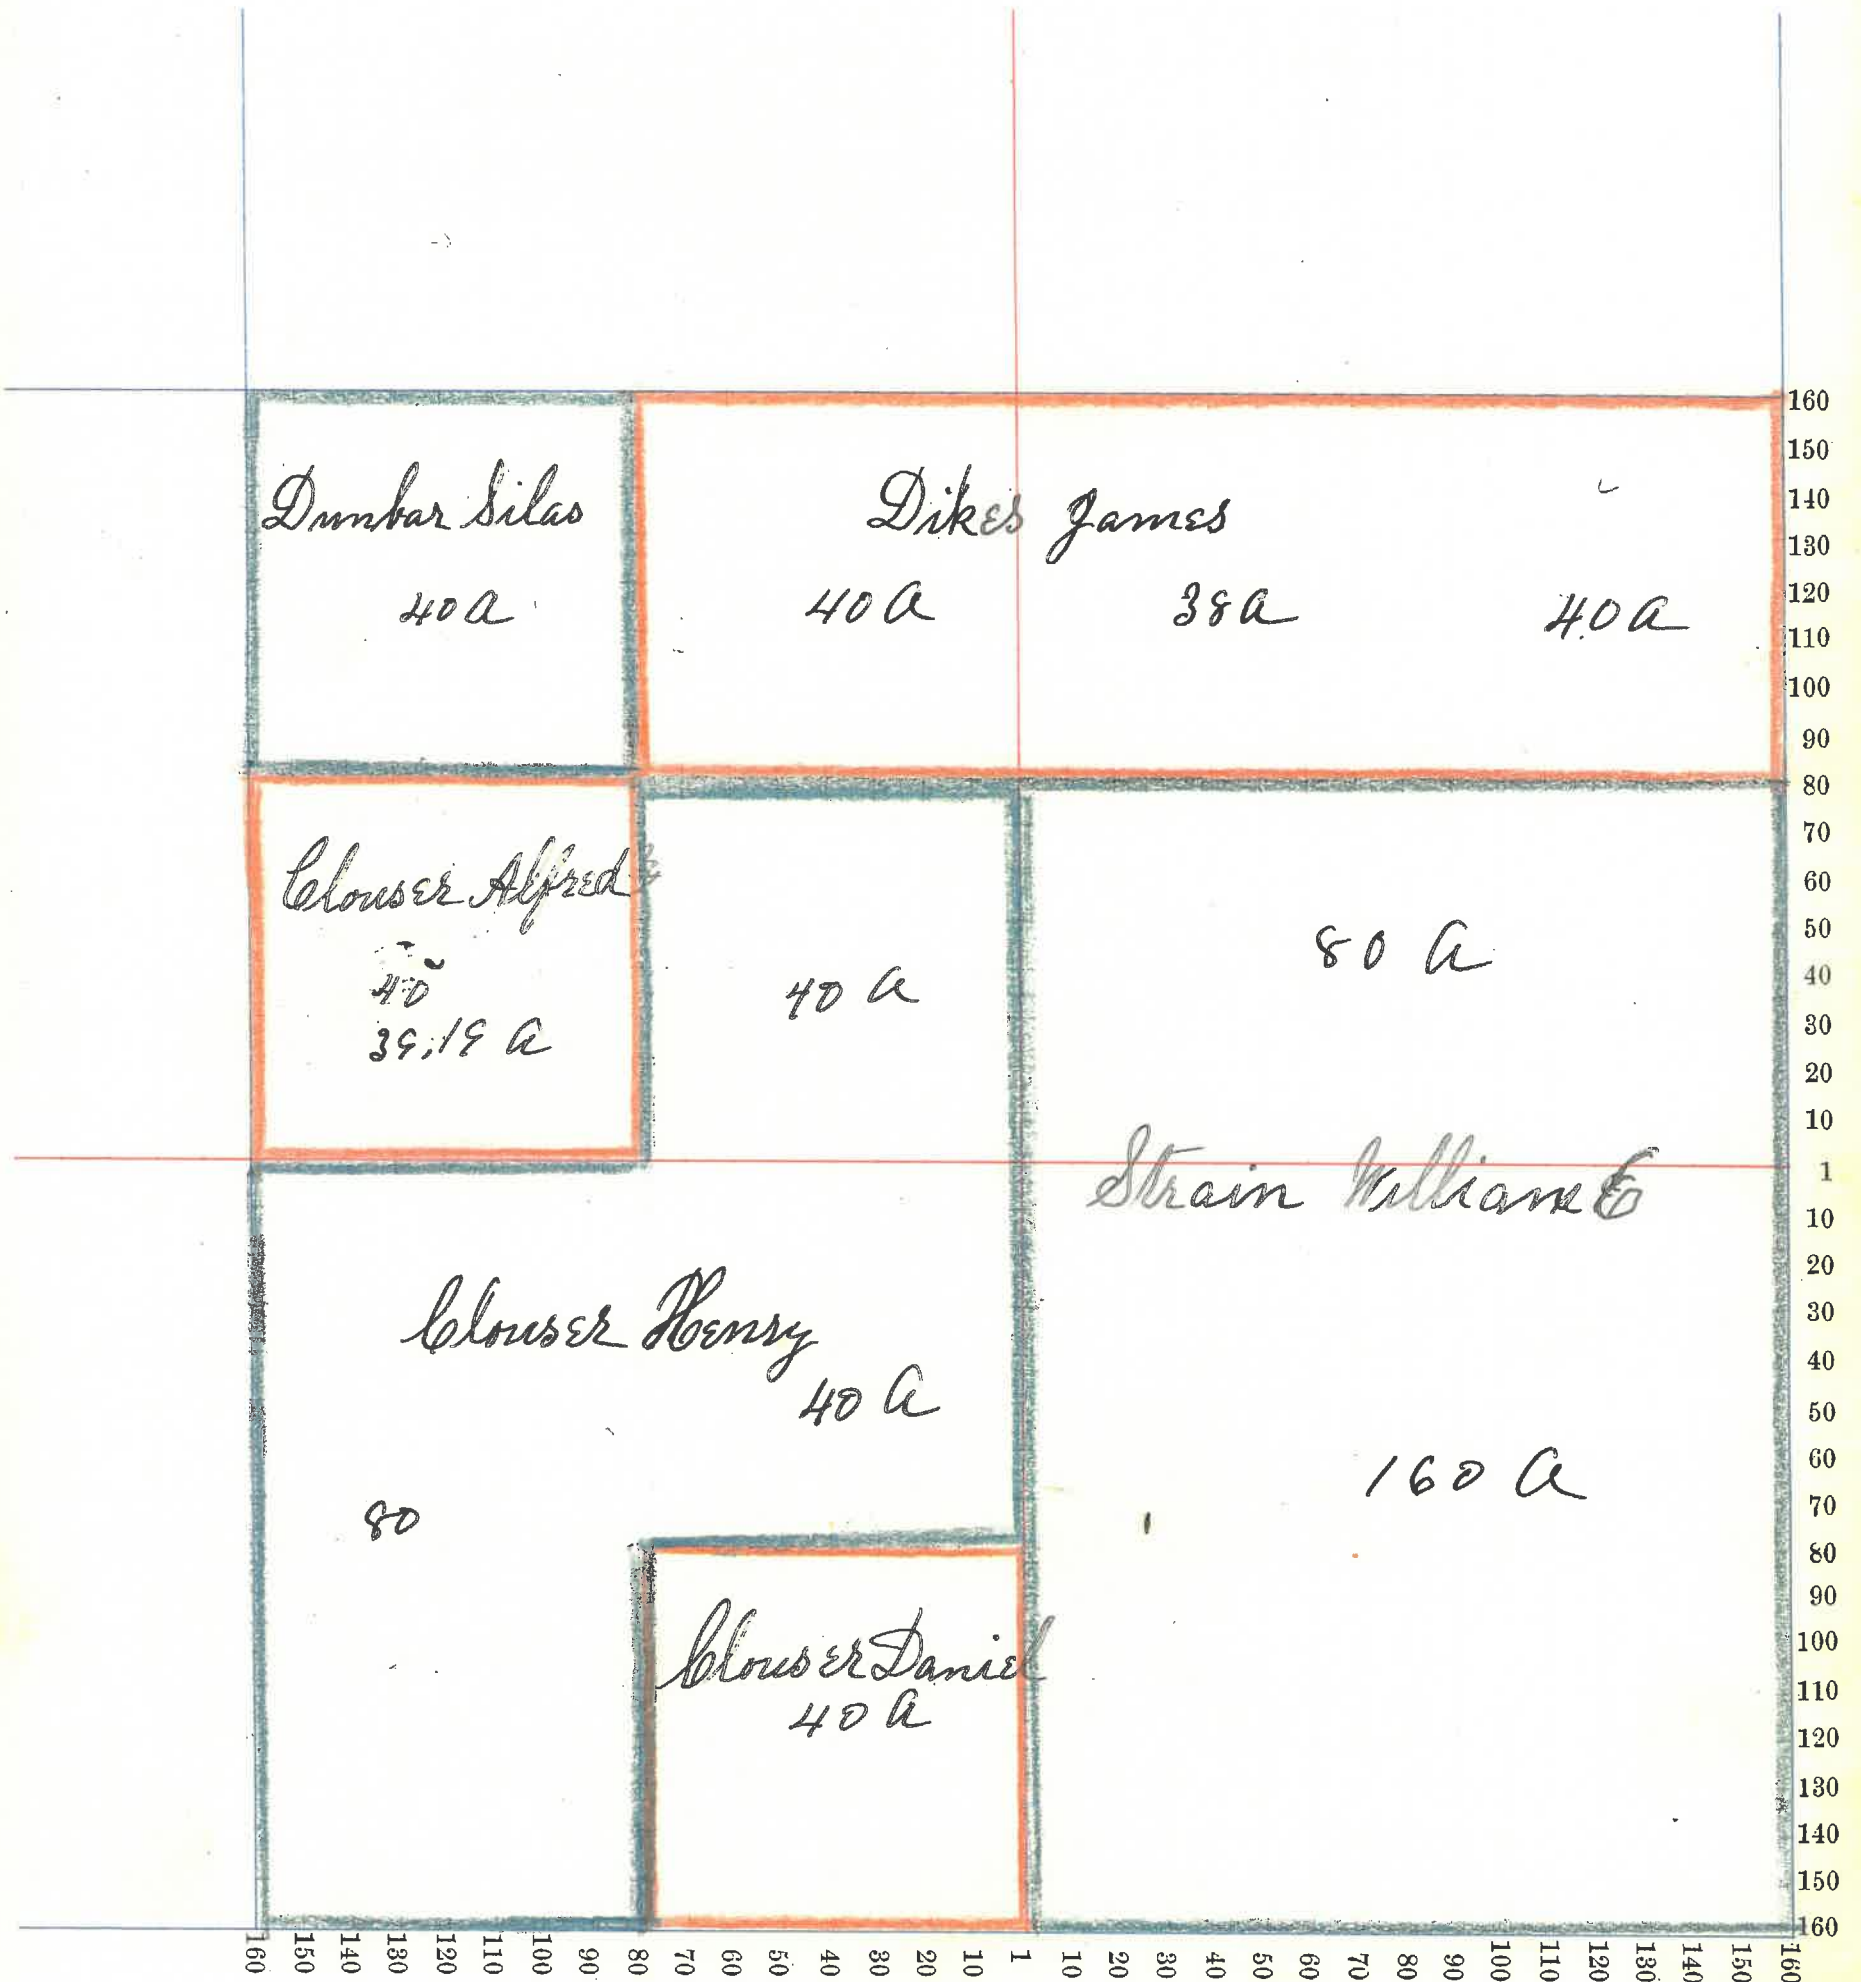 Dunbar Silas
40 A
Dikes James
40 A 38 A 40 A
Clouser Alfred
40
39.19 A
40 A
80 A
Strain William E
Clouser Henry
40 A
80
160 A
Clouser Daniel
40 A
160
150
140
130
120
110
100
90
80
70
60
50
40
30
20
10
1
10
20
30
40
50
60
70
80
90
100
110
120
130
140
150
160
160 150 140 130 120 110 100 90 80 70 60 50 40 30 20 10 1 10 20 30 40 50 60 70 80 90 100 110 120 130 140 150 160